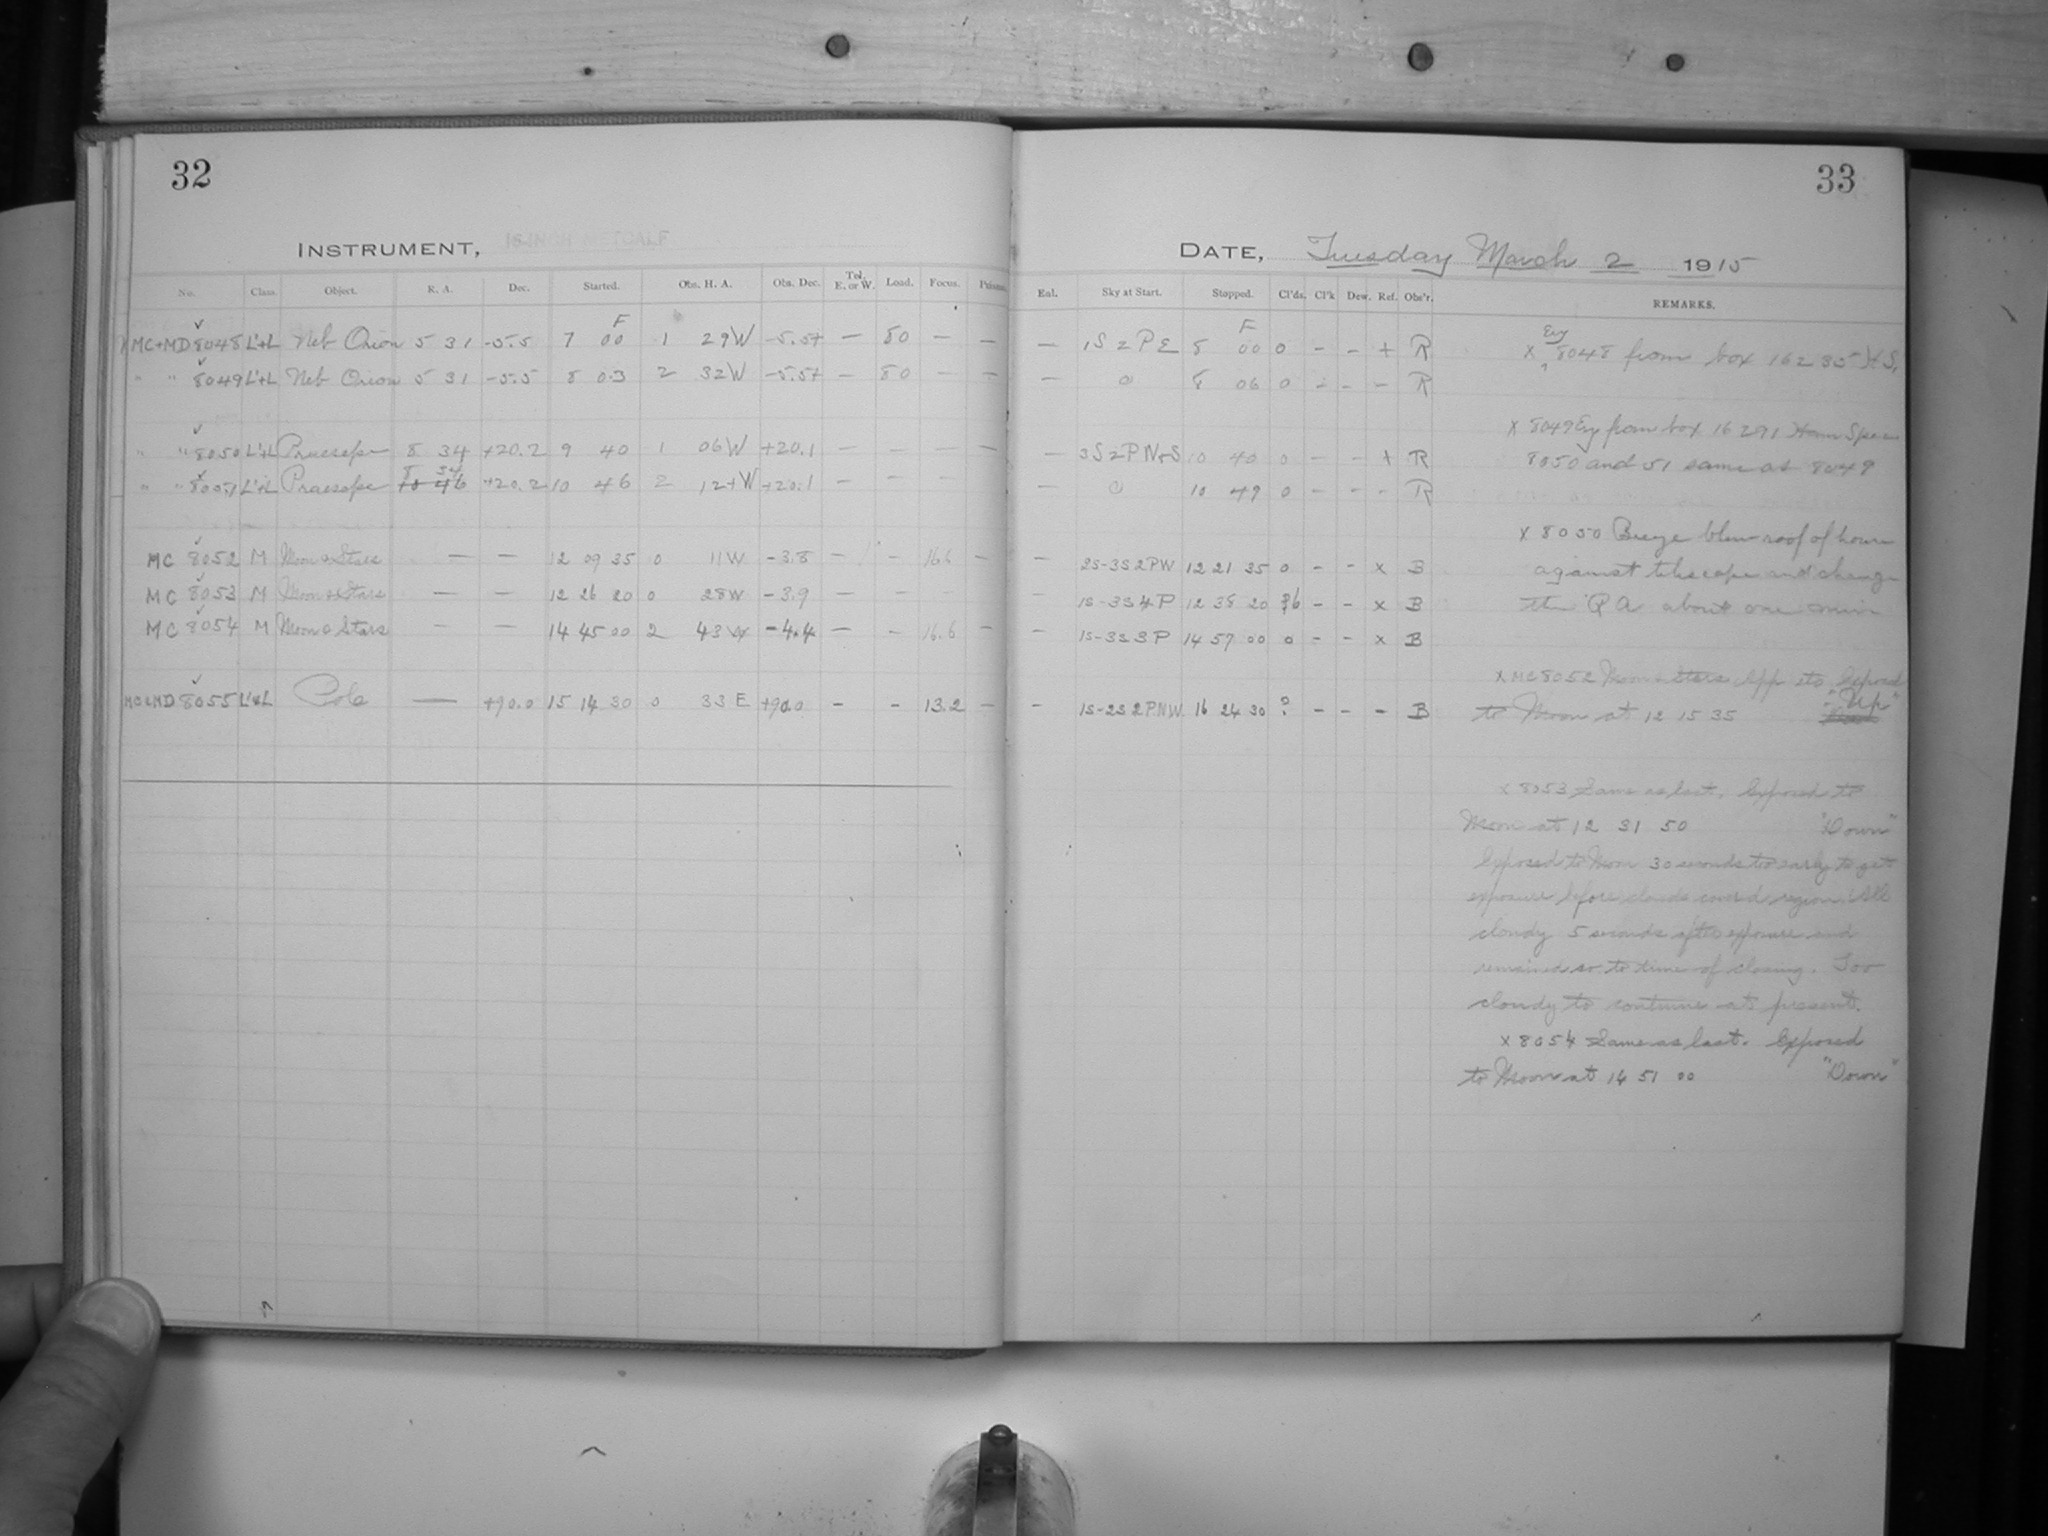 32
INSTRUMENT, 16-INCH METCALF
No. Class. Object. R. A. Dec. Started. Obs. H. A. Obs. Dec. Tel. E. or W. Load. Focus. Prisms.
MC+MD 8048 L'+L Neb Orion 5 31 -5.5 7 00 F 1 29W -5.57 — 80 — —
" " 8049 L'+L Neb Orion 5 31 -5.5 8 03 2 32W -5.57 — 80 — —
" " 8050 L'+L Praesepe 8 34 +20.2 9 40 1 06W +20.1 — — — —
" " 8051 L'+L Praesepe 8 34 +20.2 10 46 2 12+W +20.1 — — — —
MC 8052 M Moon & Stars — — 12 09 35 0 11W -3.8 — - 16.6 —
MC 8053 M Moon & Stars — — 12 26 20 0 28W -3.9 — — — —
MC 8054 M Moon & Stars — — 14 45 00 2 43W -4.4 — - 16.6 —
MC&MD 8055 L'&L Pole — +90.0 15 14 30 0 33 E +90.0 - - 13.2 —
33
DATE, Tuesday March 2 1915
Enl. Sky at Start. Stopped. Cl'ds. Cl'k Dew. Ref. Obs'r. REMARKS.
— 1S 2 P E 8 00 F 0 - - + R
— 0 8 06 0 - - - R
— 3S 2 P N+S 10 40 0 - - + R
— 0 10 49 0 - - - R
— 2S-3S 2PW 12 21 35 0 - - x B
— 1S-3S 4P 12 38 20 ?6 - - x B
— 1S-3S 3P 14 57 00 0 - - x B
— 1S-2S 2PNW 16 24 30 ? - - - B
x Evy 8048 from box 16235 H S,
x 8049 Evy from box 16291 Ham Spec
8050 and 51 same as 8049
x 8050 Breeze blew roof of house
against telescope and change
the RA about one min
x MC 8052 Moon & Stars App sto Exposed
to Moon at 12 15 35 "Up"
x 8053 Same as last. Exposed to
Moon at 12 31 50 "Down"
Exposed to Moon 30 seconds too early to get
exposure before clouds covered region. All
cloudy 5 seconds after exposure and
remained so to time of closing. Too
cloudy to continue at present.
x 8054 Same as last. Exposed
to Moon at 14 51 00 "Down"